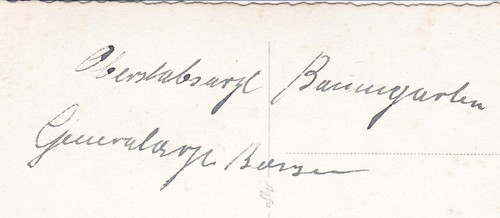 Oberstabsarzt Baumgarten
Generalarzt